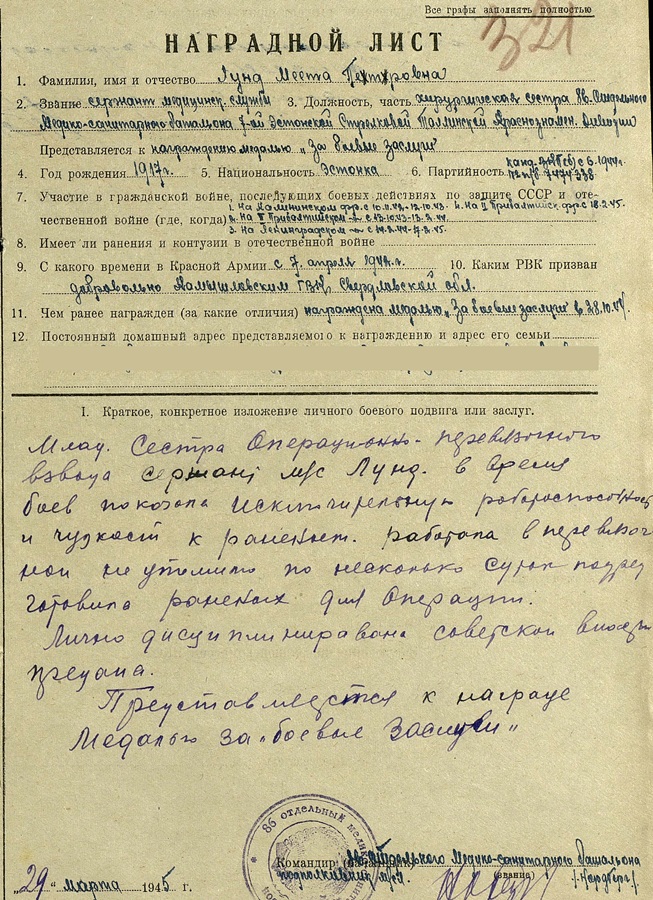 Все графы заполнять полностью
321
НАГРАДНОЙ ЛИСТ
1. Фамилия, имя и отчество Лунд Меета Петровна
2. Звание сержант медицинск. службы 3. Должность, часть хирургическая сестра 86. Отдельного
Медико-санитарного батальона 7-ой Эстонской Стрелковой Таллинской Краснознамен. Дивизии
Представляется к награждению медалью „За боевые заслуги"
4. Год рождения 1917г. 5. Национальность Эстонка 6. Партийность канд. ВКП(б) с 6.1944г.
7474338
7. Участие в гражданской войне, последующих боевых действиях по защите СССР и оте-
1. На Калининском фр. с 10.11.42-12.10.43. 4. На II Прибалтийск. фр. с 18.2.45.
чественной войне (где, когда) 2. На II Прибалтийском -"- с 13.10.43-13.2.44.
3. На Ленинградском -"- с 14.2.44-17.2.45.
8. Имеет ли ранения и контузии в отечественной войне
9. С какого времени в Красной Армии с 7. апреля 1942.г. 10. Каким РВК призван
добровольно Камышловским ГВК, Свердловской обл.
11. Чем ранее награжден (за какие отличия) награждена медалью „За боевые заслуги" в 28.10.44.
12. Постоянный домашный адрес представляемого к награждению и адрес его семьи
I. Краткое, конкретное изложение личного боевого подвига или заслуг.
Млад. Сестра Операционно-перевязочного
взвода сержант м/с Лунд. в время
боев показала исключительную работоспособность
и чуткость к раненым. работала в перевязоч-
ной неутомимо по несколько суток подряд
готовила раненых для Операции.
Лично дисциплинирована советской власти
предана.
Представляется к награде
Медалью за „боевые Заслуги"
86 отдельный медико
Командир 86. Отдельного Медико-санитарного батальона
подполковник м/сл. (звание) /Нордберг/
„29" марта 1945 г.